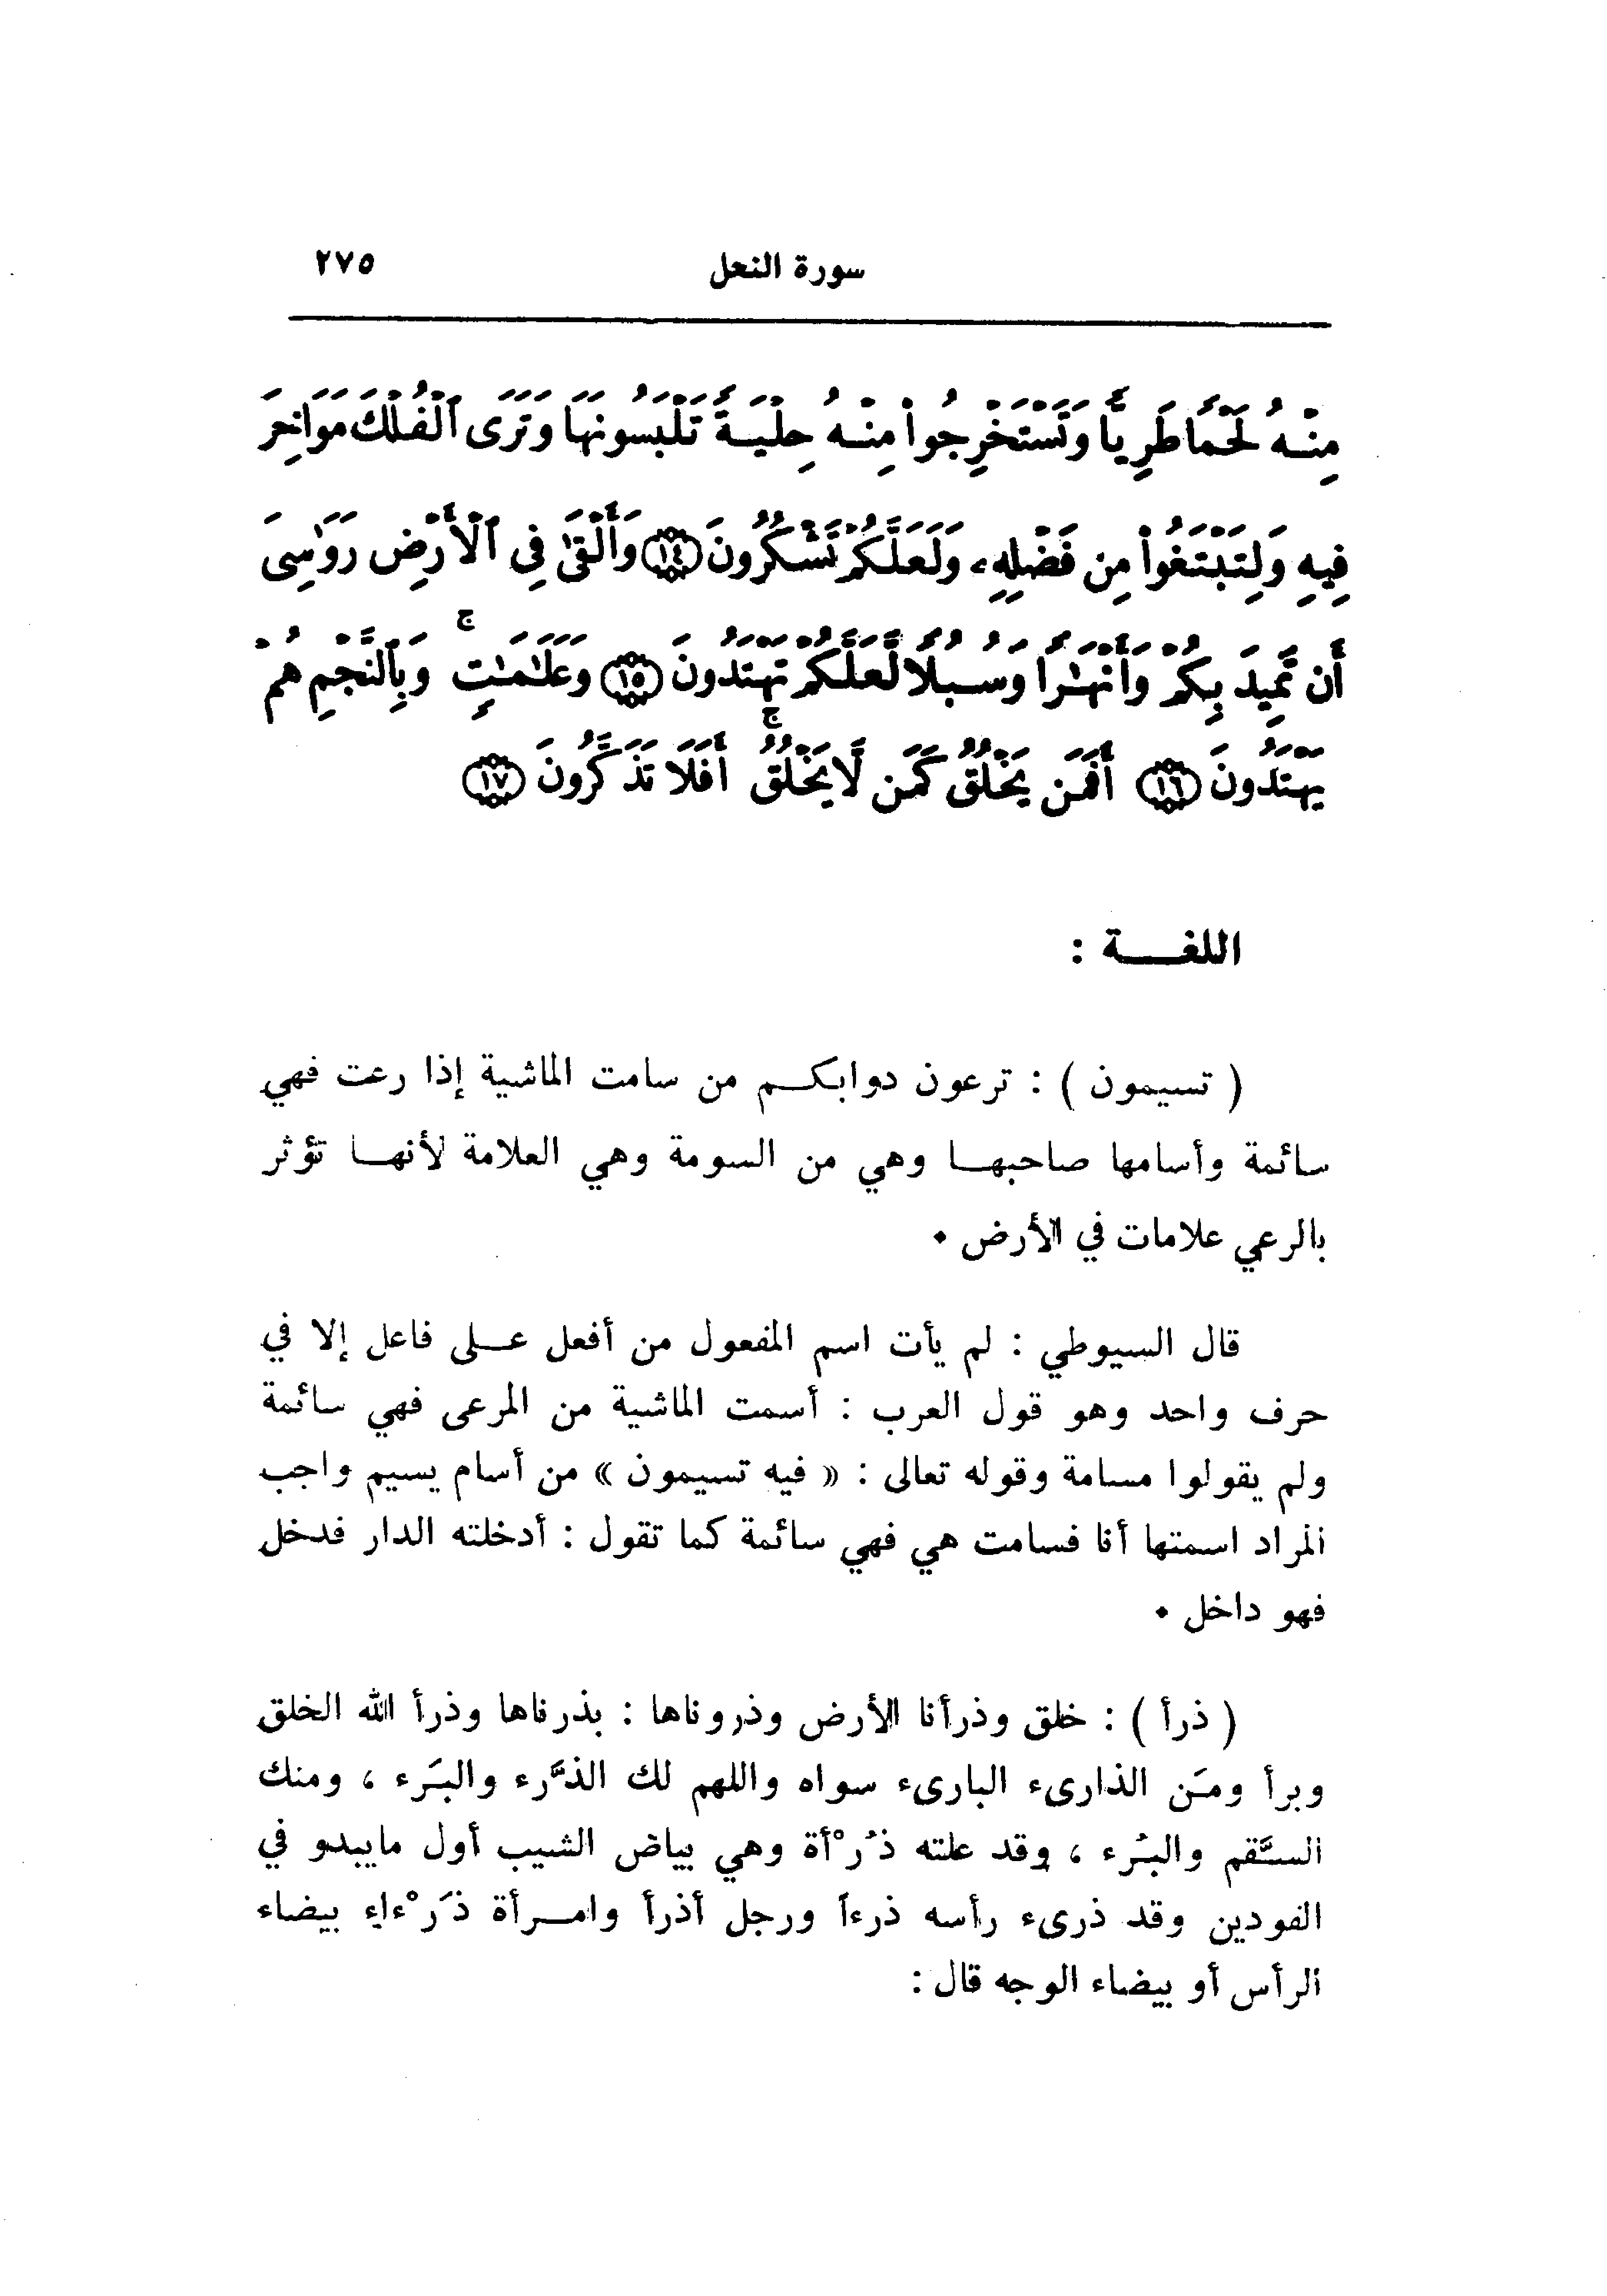 سورة النحل ٢٧٥
مِنْهُ لَحْمًا طَرِيًّا وَتَسْتَخْرِجُواْ مِنْهُ حِلْيَةً تَلْبَسُونَهَا وَتَرَى ٱلْفُلْكَ مَوَاخِرَ
فِيهِ وَلِتَبْتَغُواْ مِن فَضْلِهِۦ وَلَعَلَّكُمْ تَشْكُرُونَ ١٤ وَأَلْقَىٰ فِى ٱلْأَرْضِ رَوَٰسِىَ
أَن تَمِيدَ بِكُمْ وَأَنْهَٰرًا وَسُبُلًا لَّعَلَّكُمْ تَهْتَدُونَ ١٥ وَعَلَٰمَٰتٍ ۚ وَبِٱلنَّجْمِ هُمْ
يَهْتَدُونَ ١٦ أَفَمَن يَخْلُقُ كَمَن لَّا يَخْلُقُ ۚ أَفَلَا تَذَكَّرُونَ ١٧
اللغـــة :
( تسيمون ) : ترعون دوابكـم من سامت الماشية إذا رعت فهي
سائمة وأسامها صاحبهـا وهي من السومة وهي العلامة لأنهـا تؤثر
بالرعي علامات في الأرض .
قال السيوطي : لم يأت اسم المفعول من أفعل عـلى فاعل إلا في
حرف واحد وهو قول العرب : أسمت الماشية من المرعى فهي سائمة
ولم يقولوا مسامة وقوله تعالى : « فيه تسيمون » من أسام يسيم واجب
المراد اسمتها أنا فسامت هي فهي سائمة كما تقول : أدخلته الدار فدخل
فهو داخل .
( ذرأ ) : خلق وذرأنا الأرض وذروناها : بذرناها وذرأ الله الخلق
وبرأ ومَن الذارىء البارىء سواه واللهم لك الذَّرء والبَرء ، ومنك
السَّقم والبُرء ، وقد علته ذُرْأة وهي بياض الشيب أول مايبدو في
الفودين وقد ذرىء رأسه ذرءاً ورجل أذرأ وامـرأة ذَرْءاء بيضاء
الرأس أو بيضاء الوجه قال :